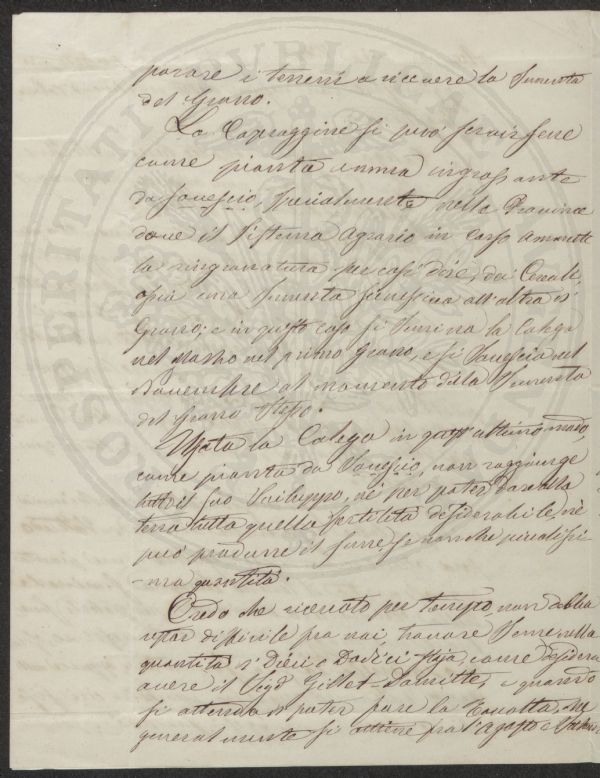 parare i terreni a ricevere la Sementa
del Grano.
La Capraggine si può servirsene
come pianta ingrassante
da Sovescio, specialmente nelle Province
dove il Sistema Agrario in corso ammette
la per così dire, dei Cereali,
ossia una Sementa successiva all'altra di
Grano; e in questo caso si Semina la Calega
nel Marzo nel primo Grano, e si Sovescia nel
Novembre al momento della Sementa
del Grano Stesso.
Usata la Calega in quest'ultimo modo,
come pianta da Sovescio, non raggiunge
tutto il suo Sviluppo, nè per poter dare alla
terra tutta quella fertilità desiderabile, nè
può produrre il Seme, se non che piccolissi-
-ma quantità.
Credo che ricercato per tempo, non debba
esser difficile fra noi, trovare Seme, nella
quantità di Dieci o Dodici Staja, come desidera
avere il Sigr Gillet-Damitte, e quando
si attenda a poter fare la Raccolta, che
generalmente si ottiene fra l'Agosto e